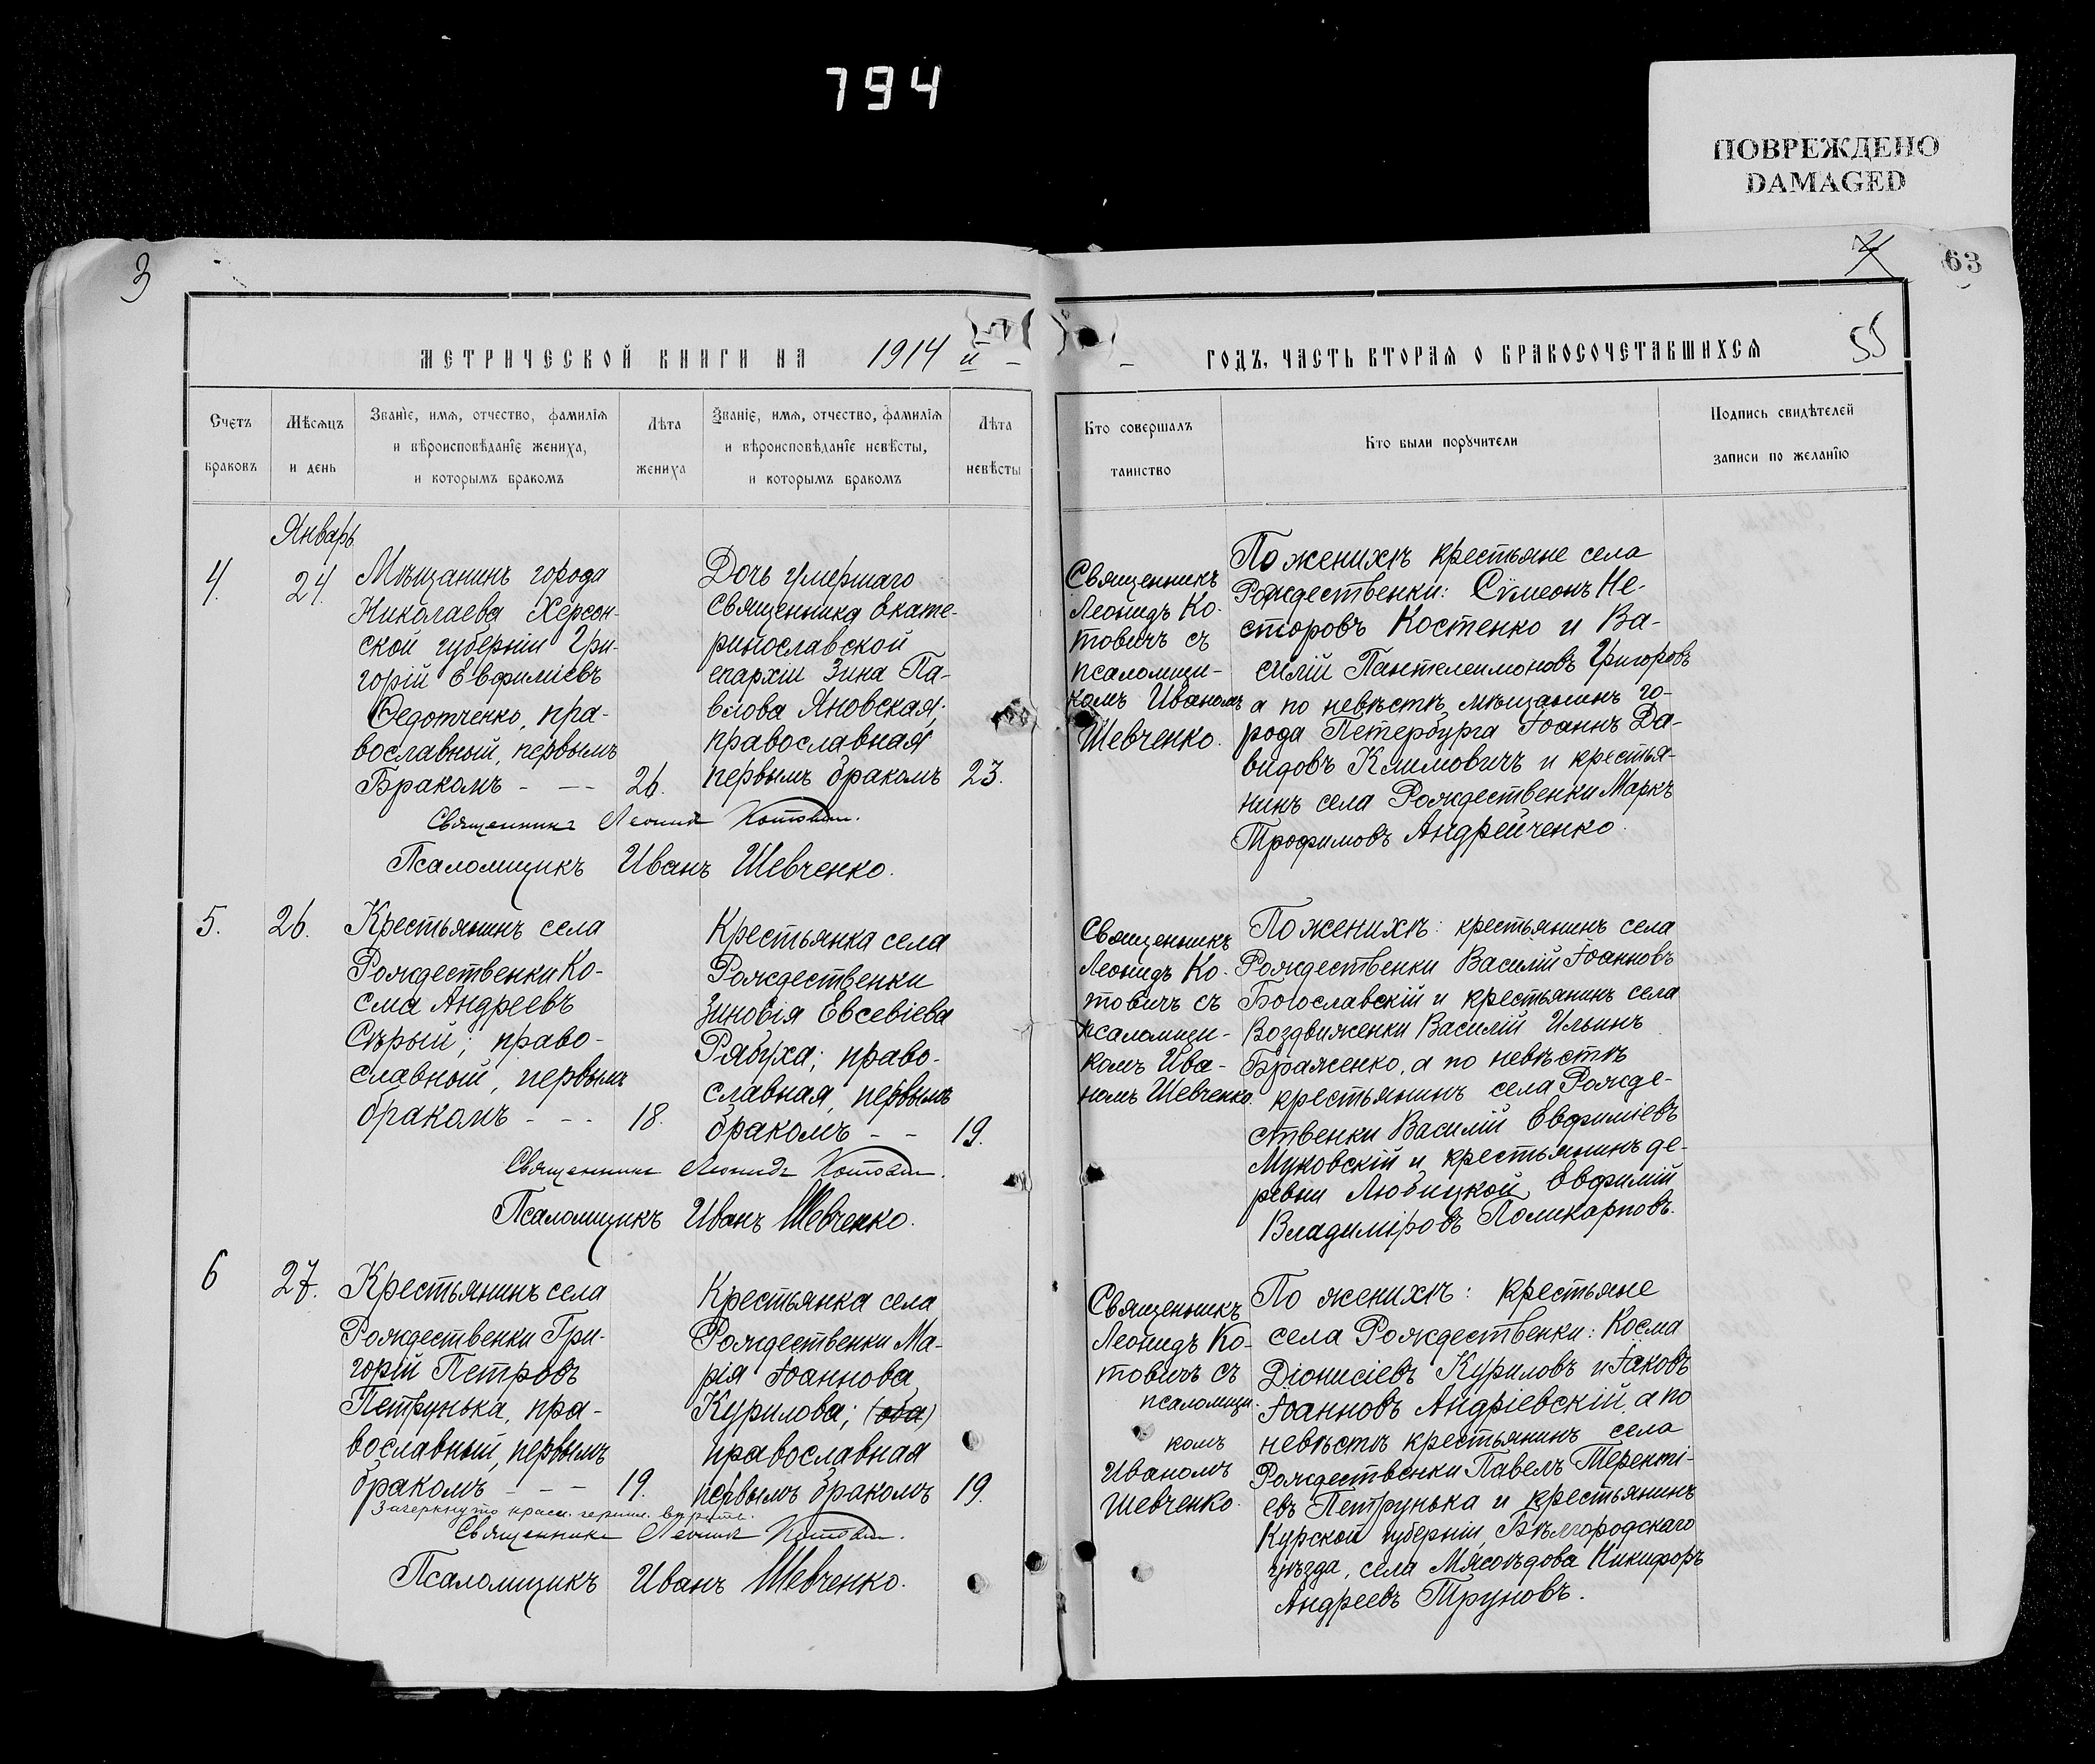 794
ПОВРЕЖДЕНО
DAMAGED
3
63
МЕТРИЧЕСКОЙ КНИГИ НА 1914 й
ГОДЪ, ЧАСТЬ ВТОРАЯ О БРАКОСОЧЕТАВШИХСЯ
55
Счетъ
браковъ
Мѣсяцъ
и день
Званіе, имя, отчество, фамилія
и вѣроисповѣданіе жениха,
и которымъ бракомъ
Лѣта
жениха
Званіе, имя, отчество, фамилія
и вѣроисповѣданіе невѣсты,
и которымъ бракомъ
Лѣта
невѣсты
Кто совершалъ
таинство
Кто были поручители
Подпись свидѣтелей
записи по желанію
Январь
4.
24.
Мѣщанинъ города
Николаева Херсон-
ской губерніи Гри-
горій Евфиміевъ
Федотченко, пра-
вославный, первымъ
Бракомъ - - -
26.
Дочь умершаго
священника Екате-
ринославской
епархіи Зина Па-
влова Яновская;
православная
первымъ бракомъ
23.
Священникъ Леонид Котович.
Псаломщикъ Иванъ Шевченко.
Священникъ
Леонидъ Ко-
товичъ съ
псаломщи-
комъ Иваномъ
Шевченко.
По женихѣ крестьяне села
Рождественки: Сѵмеонъ Не-
сторовъ Костенко и Ва-
силій Пантелеимоновъ Григоровъ
а по невѣстѣ мѣщанинъ го-
рода Петербурга Іоаннъ Да-
видовъ Климовичъ и крестья-
нинъ села Рождественки Маркъ
Трофимовъ Андрейченко.
5.
26.
Крестьянинъ села
Рождественки Ко-
сма Андреевъ
Сѣрый; право-
славный, первымъ
бракомъ - - -
18.
Крестьянка села
Рождественки
Зиновія Евсевіева
Рябуха; право-
славная, первымъ
бракомъ - -
19.
Священникъ Леонидъ Котович.
Псаломщикъ Иванъ Шевченко.
Священникъ
Леонидъ Ко-
товичъ съ
псаломщи-
комъ Ива-
номъ Шевченко.
По женихѣ: крестьянинъ села
Рождественки Василій Іоанновъ
Богославскій и крестьянинъ села
Воздвиженки Василій Ильинъ
Браженко, а по невѣстѣ
крестьянинъ села Рожде-
ственки Василій Евфиміевъ
Муковскій и крестьянинъ де-
ревни Любицкой Евфимій
Владиміровъ Поликарповъ.
6
27.
Крестьянинъ села
Рождественки Гри-
горій Петровъ
Петрунька, пра-
вославный, первымъ
бракомъ - - -
19.
Крестьянка села
Рождественки Ма-
рія Іоаннова
Курилова; (оба)
православная
первымъ бракомъ
19.
Зачеркнуто красн. чернил. вѣрить.
Священникъ Леонид Котович.
Псаломщикъ Иванъ Шевченко.
Священникъ
Леонидъ Ко-
товичъ съ
псаломщи-
комъ
Иваномъ
Шевченко.
По женихѣ: крестьяне
села Рождественки: Косма
Діонисіевъ Куриловъ и Іаковъ
Іоанновъ Андріевскій, а по
невѣстѣ крестьянинъ села
Рождественки Павелъ Теренті-
евъ Петрунька и крестьянинъ
Курской губерніи, Бѣлгородскаго
уѣзда, села Мясоѣдова Никифоръ
Андреевъ Труновъ.